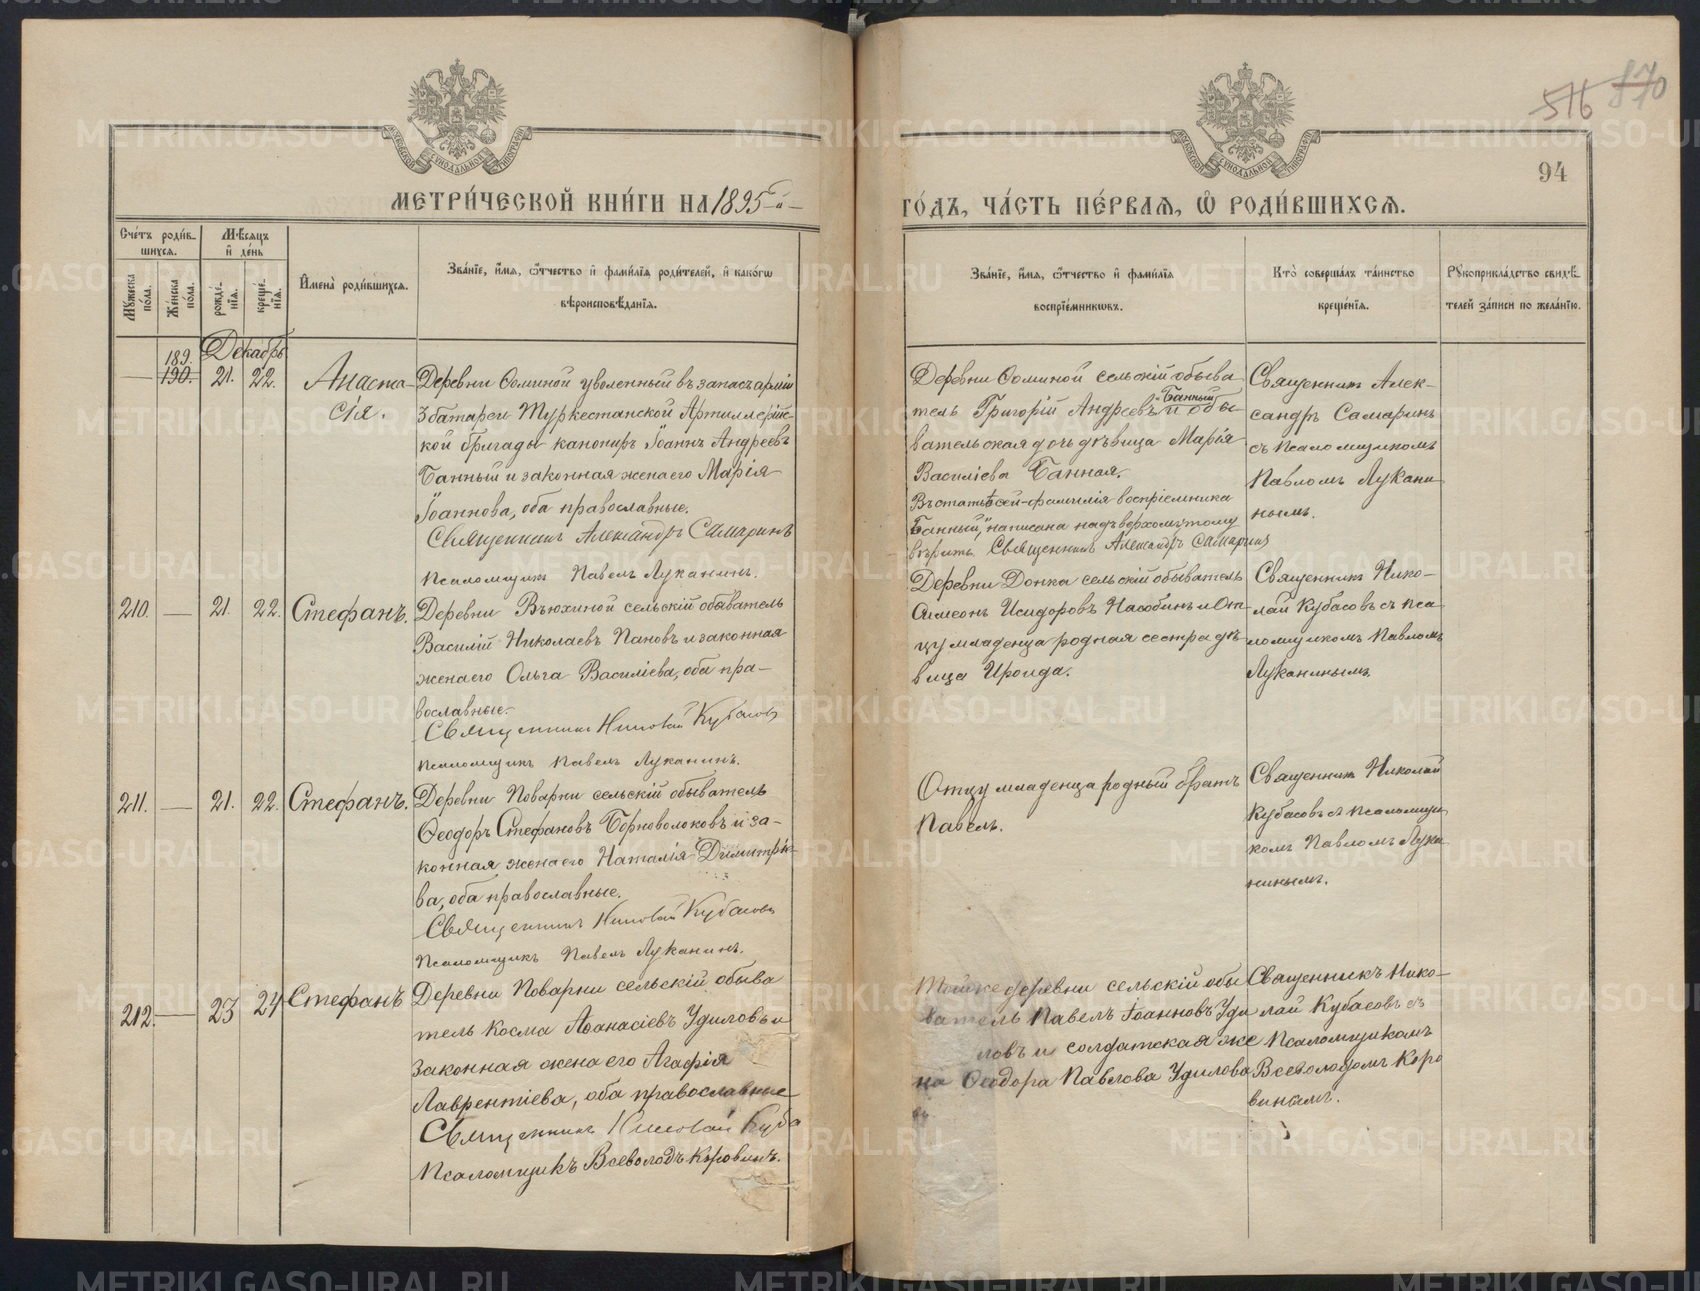 516 870
94
МОСКОВСКОЙ СѴНОДАЛЬНОЙ ТИПОГРАФІИ
МОСКОВСКОЙ СѴНОДАЛЬНОЙ ТИПОГРАФІИ
МЕТРИ́ЧЕСКОЙ КНИ́ГИ НА 1895й
ГО́ДЪ, ЧА́СТЬ ПЕ́РВАЯ, Ѡ҆ РОДИ́ВШИХСЯ.
Сче́тъ роди́в-
шихся.
Мꙋ́жеска по́ла.
Же́нска по́ла.
Мѣ́сяцъ
и҆ де́нь
рожде́нїя.
креще́нїя.
И҆мена̀ роди́вшихся.
Зва́нїе, и҆́мя, ѻ҆́тчество и҆ фами́лїя роди́телей, и҆ како́гѡ
вѣроисповѣ́данїя.
Зва́нїе, и҆́мя, ѻ҆́тчество и҆ фами́лїя
воспрїе́мникѡвъ.
Кто̀ соверша́лъ та́инство
креще́нїя.
Рꙋкоприкла́дство свидѣ́-
телей за́писи по жела́нїю.
Декабрь
189.
— 190. 21. 22.
Анаста-
сія.
Деревни Ѳоминой уволенный въ запасъ арміи
3 батареи Туркестанской Артиллерійс-
кой бригады канониръ Іоаннъ Андреевъ
Банный и законная жена его Марія
Іоаннова, оба православные.
Священникъ Александръ Самаринъ
Псаломщикъ Павелъ Луканинъ.
Деревни Ѳоминой сельскій обыва-
тель Григорій Андреевъ "Банный" и обы-
вательская дочь дѣвица Марія
Василіева Банная.
Въ статьѣ сей фамилія воспріемника
"Банный," написана надъ верхомъ, тому
вѣрить. Священникъ Александръ Самаринъ
Священникъ Алек-
сандръ Самаринъ
съ псаломщикомъ
Павломъ Лукани-
нымъ.
210. — 21. 22. Стефанъ.
Деревни Вьюхиной сельскій обыватель
Василій Николаевъ Пановъ и законная
жена его Ольга Василіева, оба пра-
вославные.
Священникъ Николай Кубасовъ
Псаломщикъ Павелъ Луканинъ.
Деревни Донка сельскій обыватель
Симеонъ Исидоровъ Насобинъ и От-
цу младенца родная сестра дѣ-
вица Ироида.
Священникъ Нико-
лай Кубасовъ съ пса-
ломщикомъ Павломъ
Луканинымъ.
211. — 21. 22. Стефанъ.
Деревни Поварни сельскій обыватель
Ѳеодоръ Стефановъ Борноволоковъ и за-
конная жена его Наталія Димитріе-
ва, оба православные.
Священникъ Николай Кубасовъ
Псаломщикъ Павелъ Луканинъ.
Отцу младенца родный братъ
Павелъ.
Священникъ Николай
Кубасовъ съ псаломщи-
комъ Павломъ Лука-
нинымъ.
212. — 23 24 Стефанъ
Деревни Поварни сельскій обыва
тель Косма Аѳанасіевъ Удиловъ и
законная жена его Агафія
Лаврентіева, оба православные
Священникъ Николай Куба
Псаломщикъ Всеволодъ Коровинъ.
Той же деревни сельскій обы
ватель Павелъ Іоанновъ Уди
ловъ и солдатская же
на Ѳеодора Павлова Удилова
Священникъ Нико-
лай Кубасовъ съ
Псаломщикомъ
Всеволодомъ Коро
винымъ.
METRIKI.GASO-URAL.RU